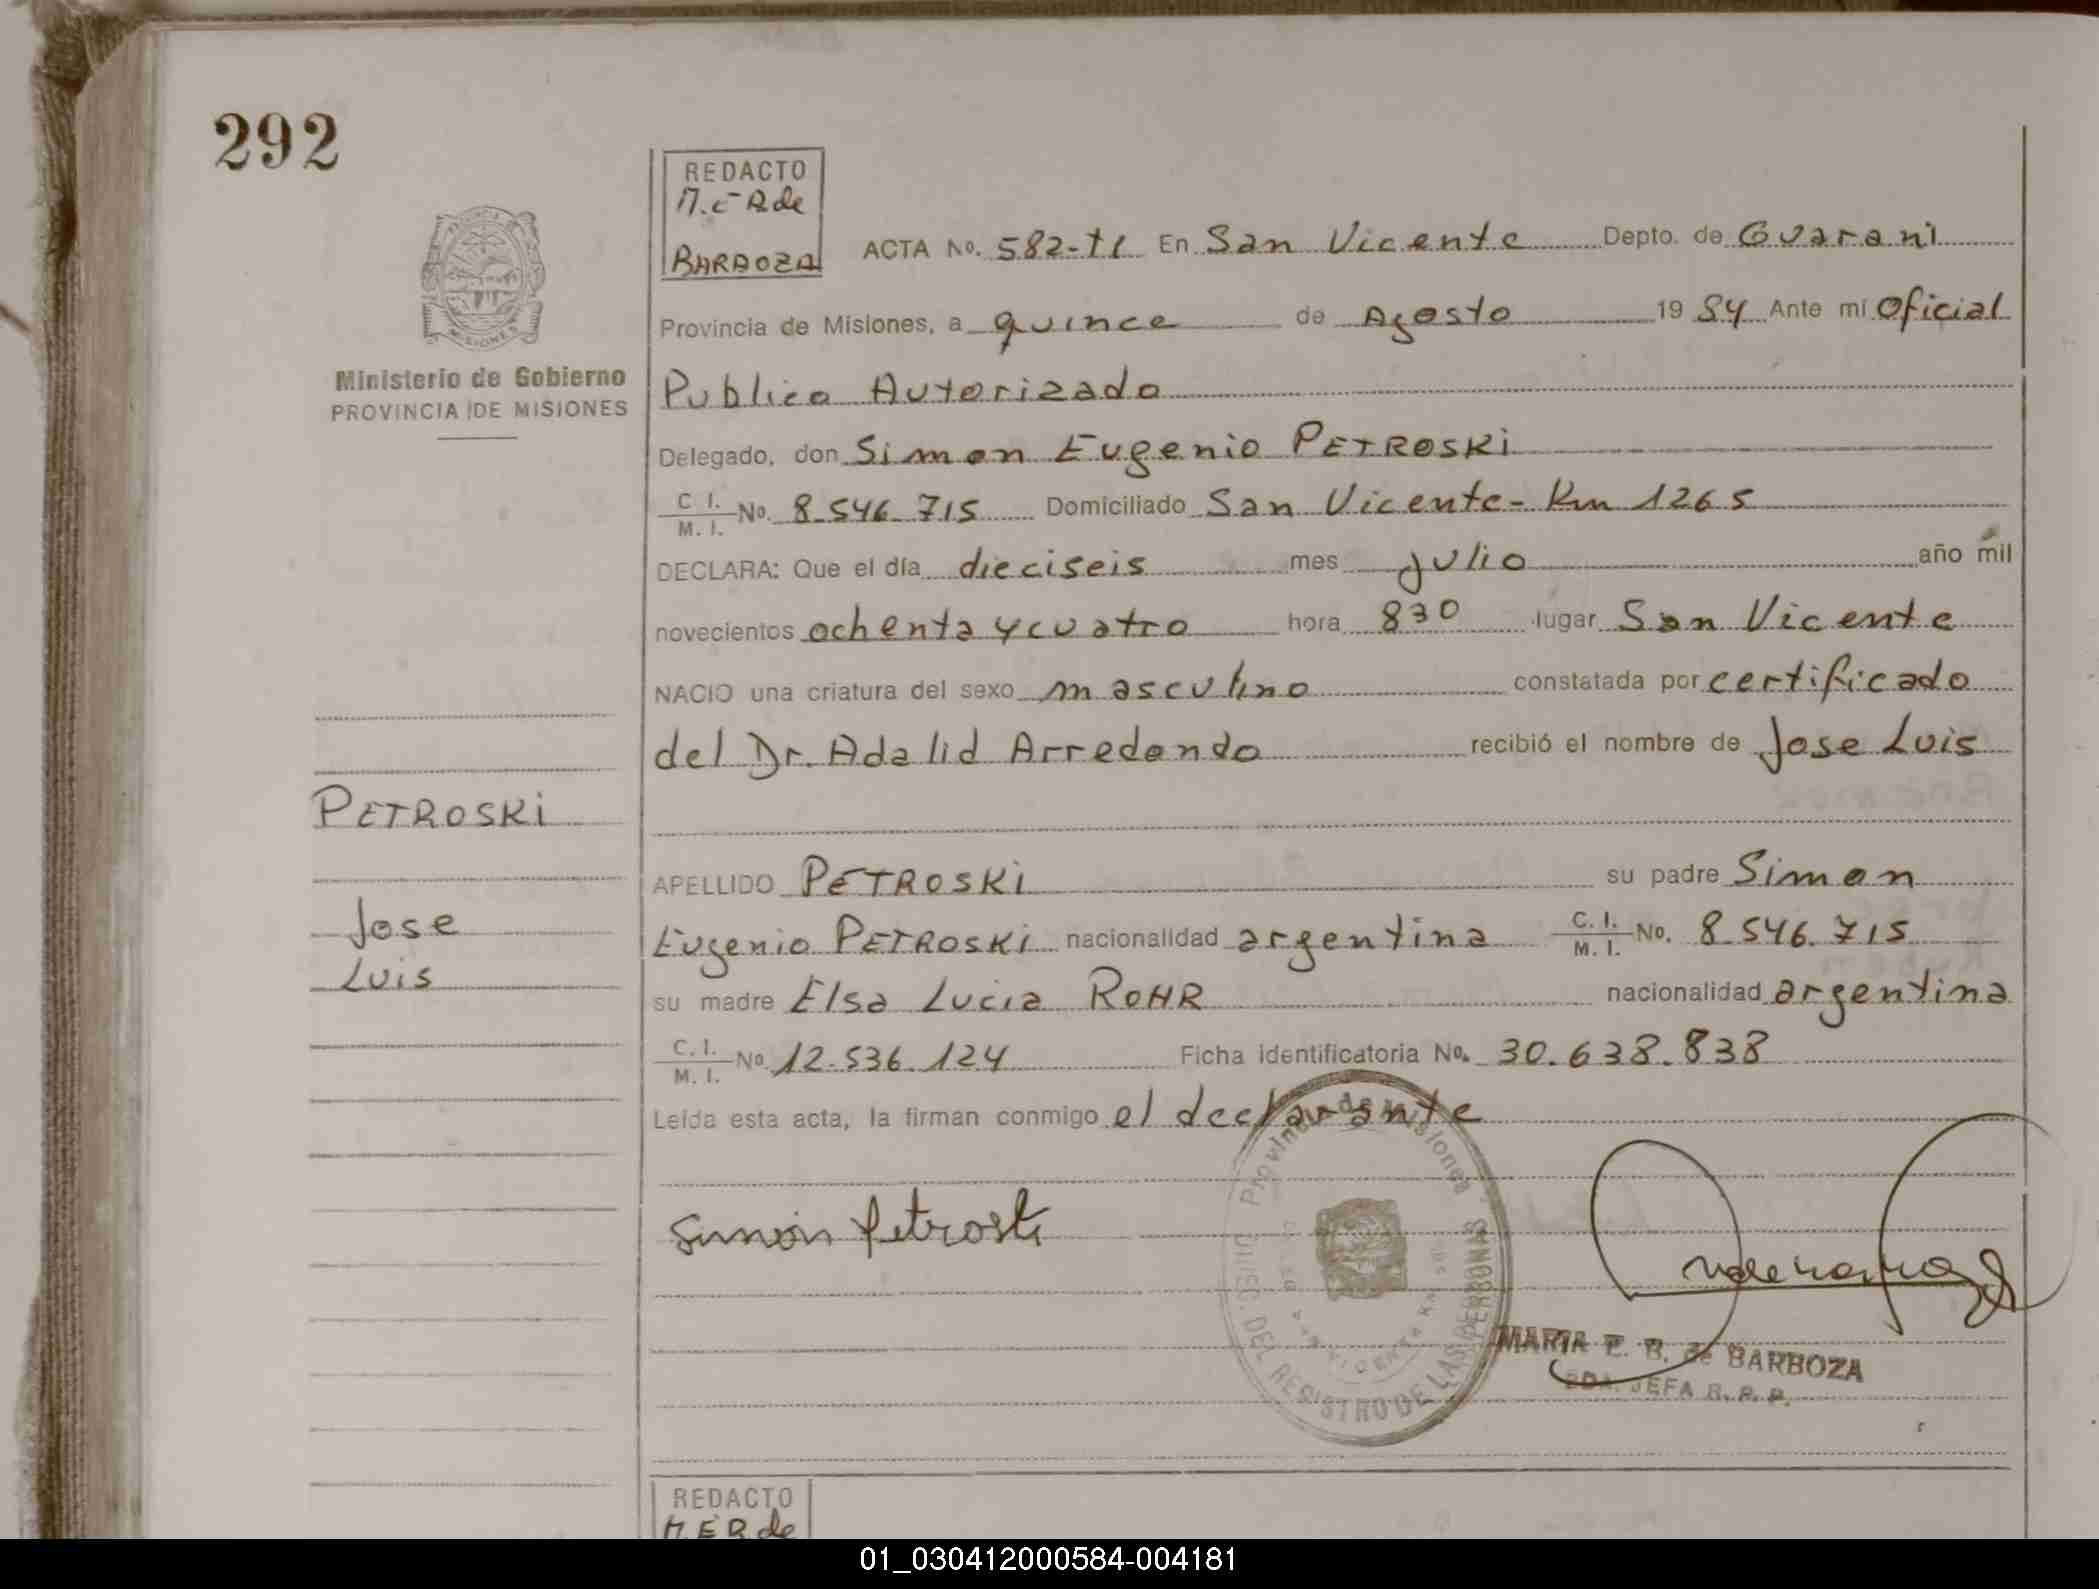 292
REDACTO
M.E.R de
BARBOZA
ACTA No. 582-TI En San Vicente Depto. de Guarani
Provincia de Misiones, a quince de Agosto 1984 Ante mi Oficial
Publico Autorizado
Delegado, don Simon Eugenio PETROSKI
C. I. M. I. No. 8.546.715 Domiciliado San Vicente - Km 1265
DECLARA: Que el día dieciseis mes Julio año mil
novecientos ochenta y cuatro hora 830 lugar San Vicente
NACIO una criatura del sexo masculino constatada por certificado
del Dr. Adalid Arredondo recibió el nombre de Jose Luis
APELLIDO PETROSKI su padre Simon
Eugenio PETROSKI nacionalidad argentina C. I. M. I. No. 8.546.715
su madre Elsa Lucia ROHR nacionalidad argentina
C. I. M. I. No. 12.536.124 Ficha identificatoria No. 30.638.838
Leída esta acta, la firman conmigo el declarante
Simón Petroski
MARIA E. B. de BARBOZA
JEFA R. P. P.
Provincia de Misiones
DEL REGISTRO DE LAS PERSONAS
SAN VICENTE
PROVINCIA
MISIONES
Ministerio de Gobierno
PROVINCIA DE MISIONES
PETROSKI
Jose
Luis
REDACTO
M.E.R de
01_030412000584-004181